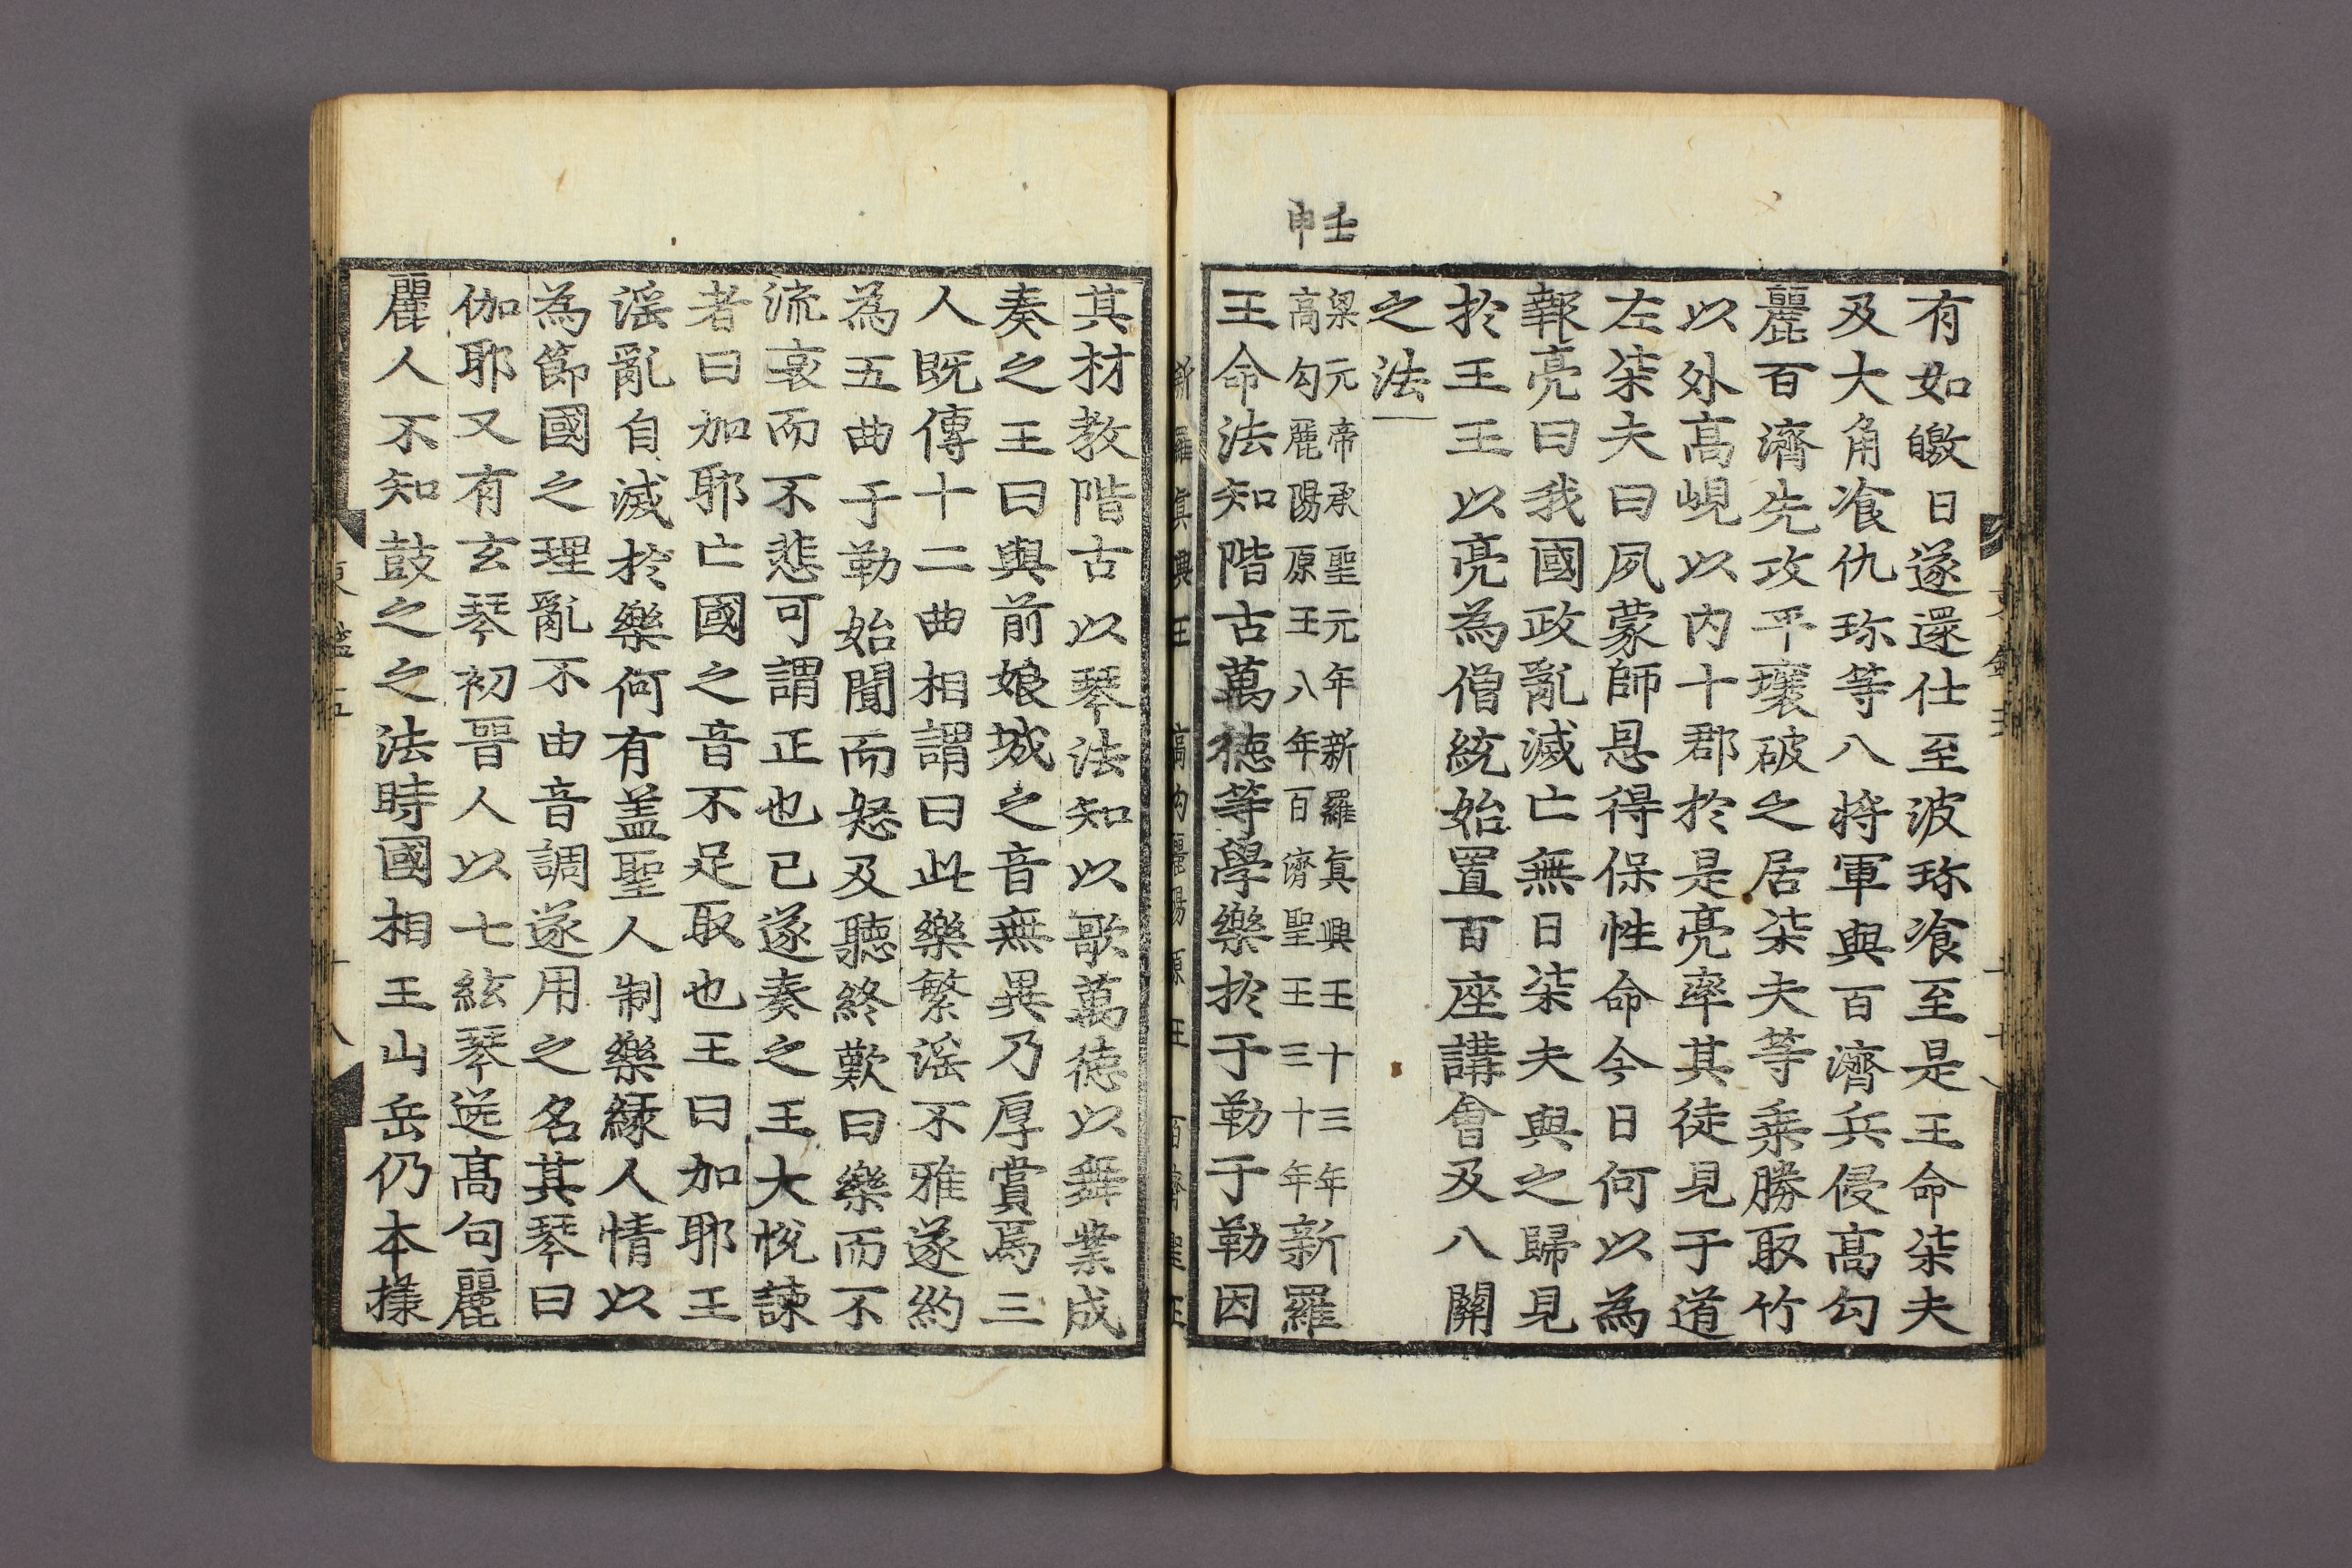 有如皦日遂還仕至波珎飡至是王命柒夫
及大角飡仇珎等八將軍與百濟兵侵高勾
麗百濟先攻平壤破之居柒夫等乗勝取竹
以外高峴以内十郡於是亮率其徒見于道
左柒夫曰夙蒙師恩得保性命今日何以為
報亮曰我國政亂滅亡無日柒夫與之歸見
於王王以亮為僧統始置百座講會及八關
之法
壬
申
梁元帝承聖元年新羅真興王十三年
高勾麗陽原王八年百濟聖王三十年
新羅
王命法知階古萬徳等學樂於于勒于勒因
新羅真興王 高勾麗陽原王 百濟聖王
其材教階古以琴法知以歌萬徳以舞業成
奏之王曰與前娘城之音無異乃厚賞焉三
人既傳十二曲相謂曰此樂繁淫不雅遂約
為五曲于勒始聞而怒及聽終歎曰樂而不
流哀而不悲可謂正也已遂奏之王大悅諫
者曰加耶亡國之音不足取也王曰加耶王
淫亂自滅於樂何有盖聖人制樂緣人情以
為節國之理亂不由音調遂用之名其琴曰
伽耶又有玄琴初晉人以七絃琴送高句麗
麗人不知鼓之之法時國相王山岳仍本㨾
東鑑五 十八